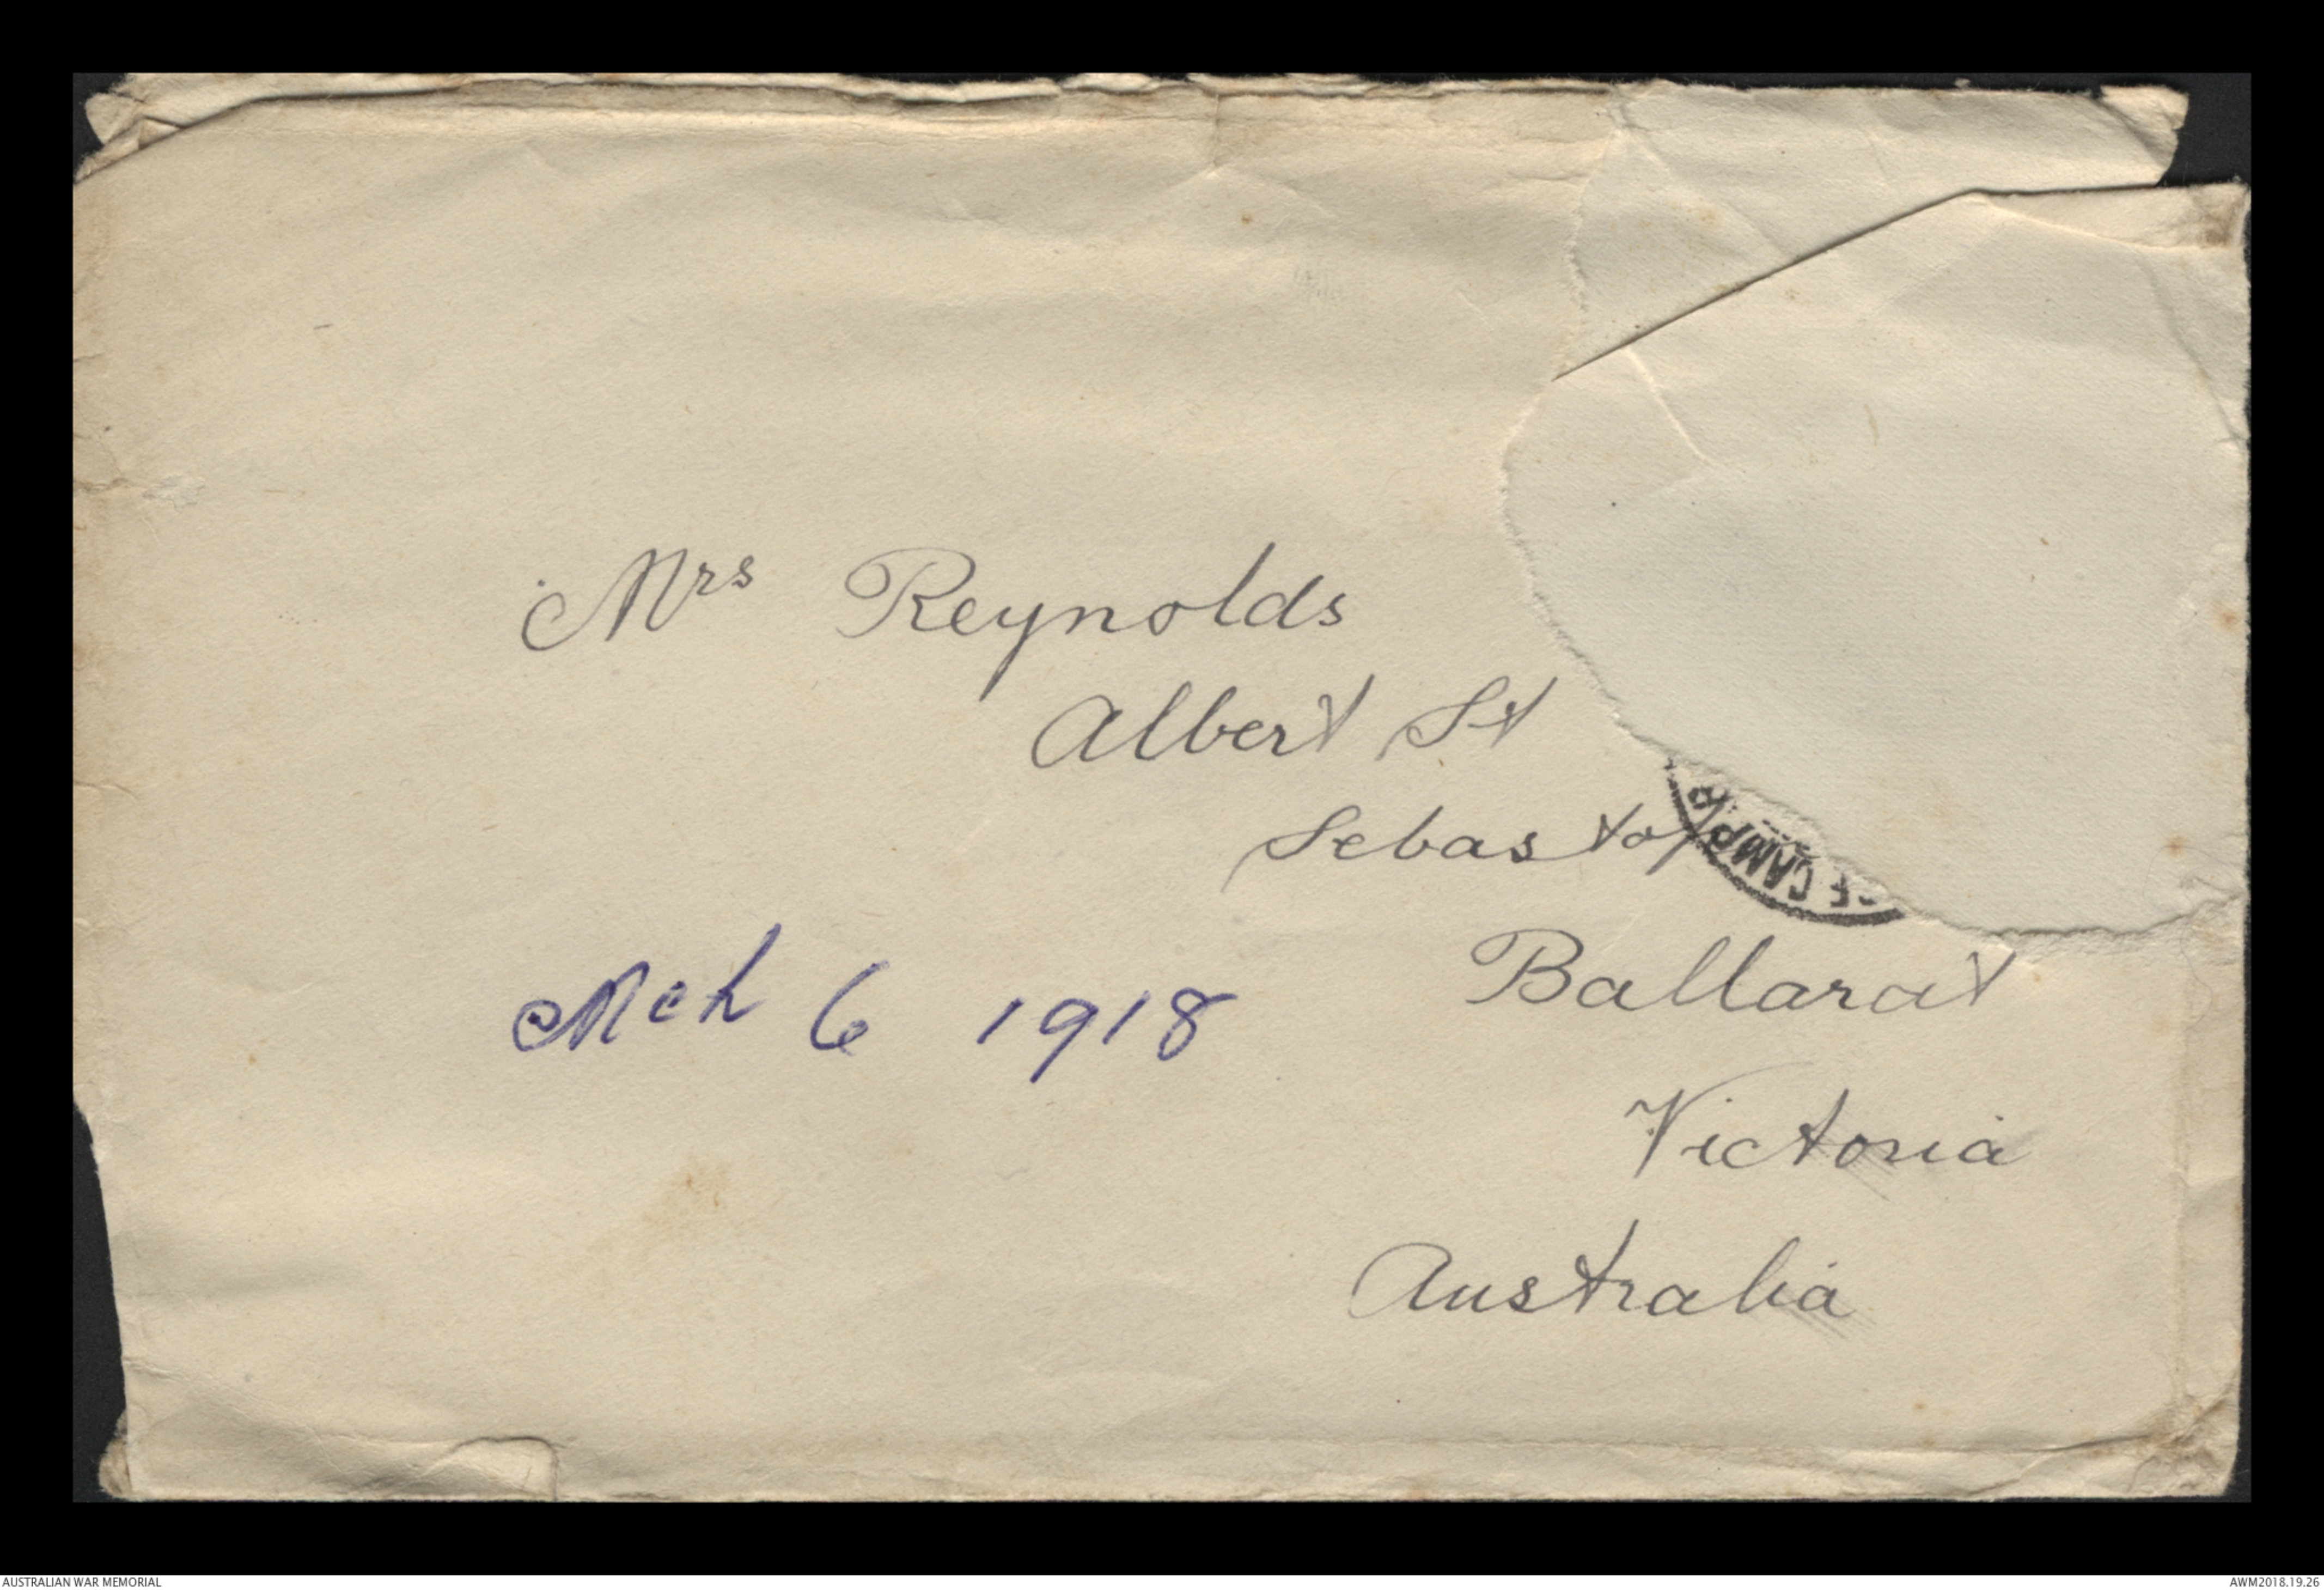 Mrs Reynolds
Albert St
Sebastop
Ballarat
Victoria
Australia
Mch 6 1918
CAMP
AUSTRALIAN WAR MEMORIAL
AWM2018.19.26